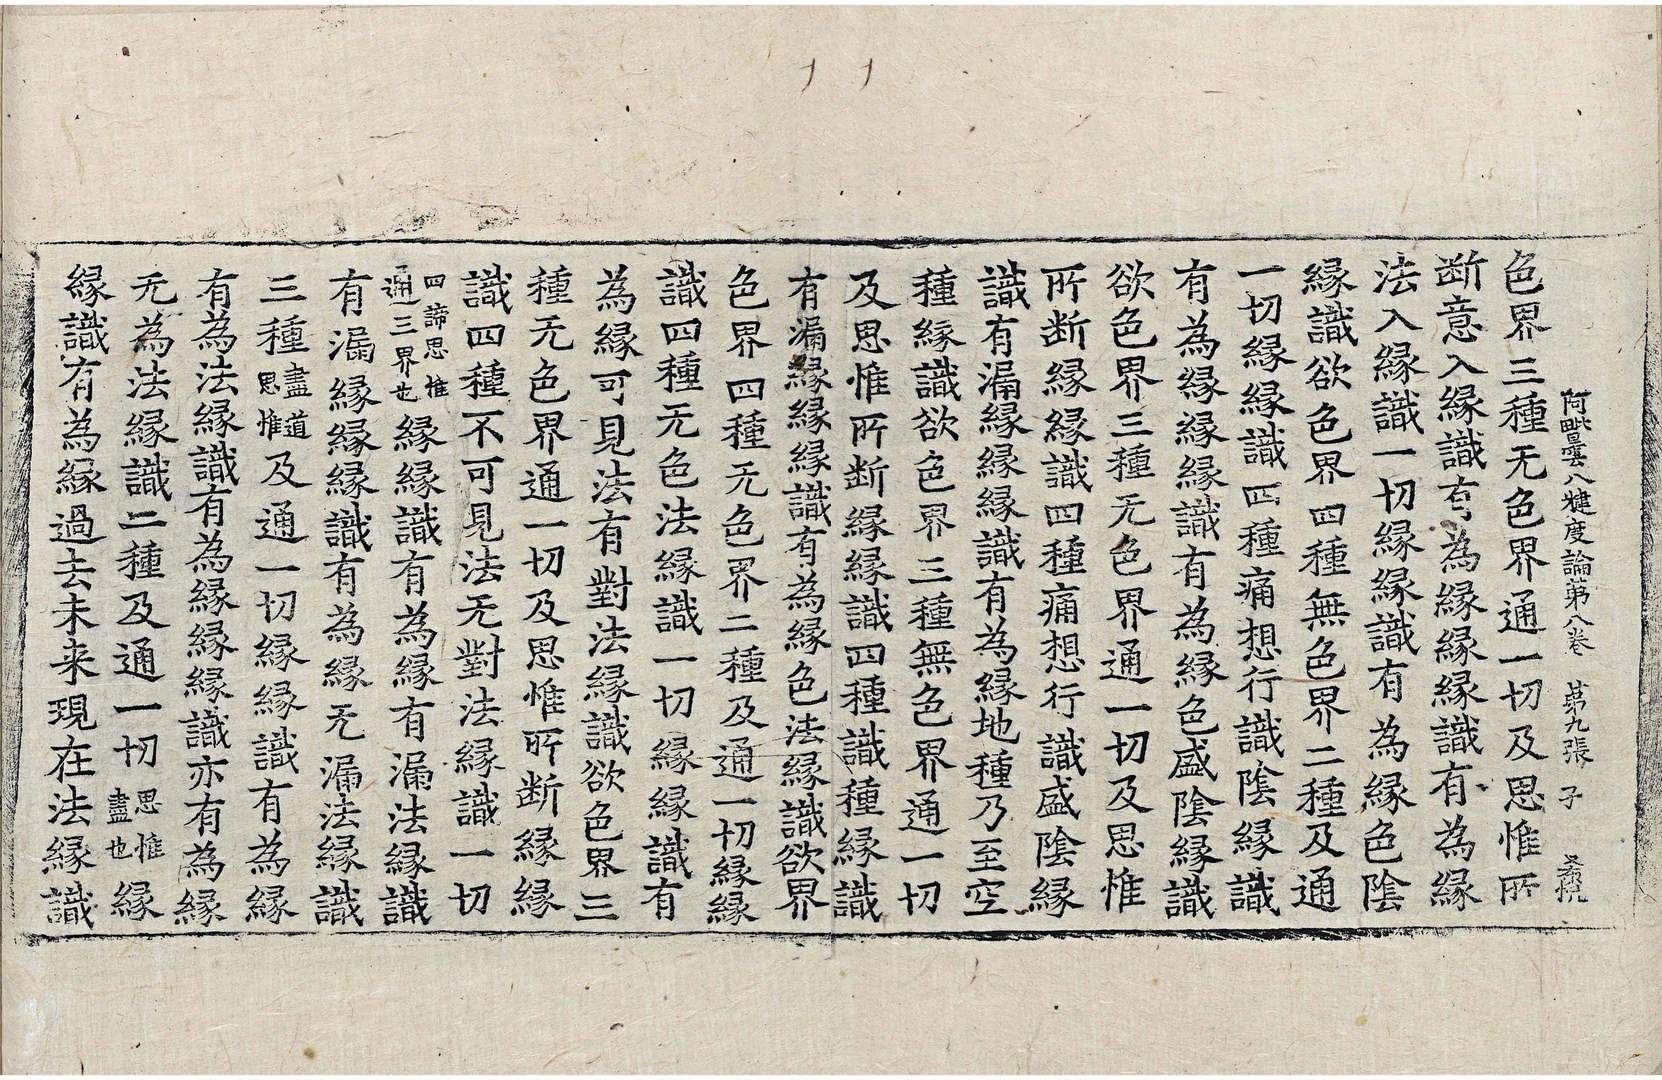 阿毗曇八犍度論第八卷 第九張 子
色界三種无色界通一切及思惟所
断意入緣識有為緣緣識有為緣
法入緣識一切緣識有為緣色陰
緣識欲色界四種無色界二種及通
一切緣緣識四種痛想行識陰緣識
有為緣緣識有為緣色盛陰緣識
欲色界三種无色界通一切及思惟
所断緣緣識四種痛想行識盛陰緣
識有漏緣緣緣識有為緣地種乃至空
種緣識欲色界三種無色界通一切
及思惟所断緣緣識四種識種緣識
有漏緣緣緣識有為緣色法緣識欲界
色界四種无色界二種及通一切緣緣
識四種无色法緣識一切緣緣識有
為緣可見法有對法緣識欲色界三
種无色界通一切及思惟所断緣緣
識四種不可見法无對法緣識一切
四諦思惟通三界也緣緣識有為緣有漏法緣識
有漏緣緣緣識有為緣无漏法緣識
三種盡道思惟及通一切緣緣識有為緣
有為法緣識有為緣緣緣識亦有為緣
无為法緣識二種及通一切思惟盡也緣
緣識有為緣過去未来現在法緣識